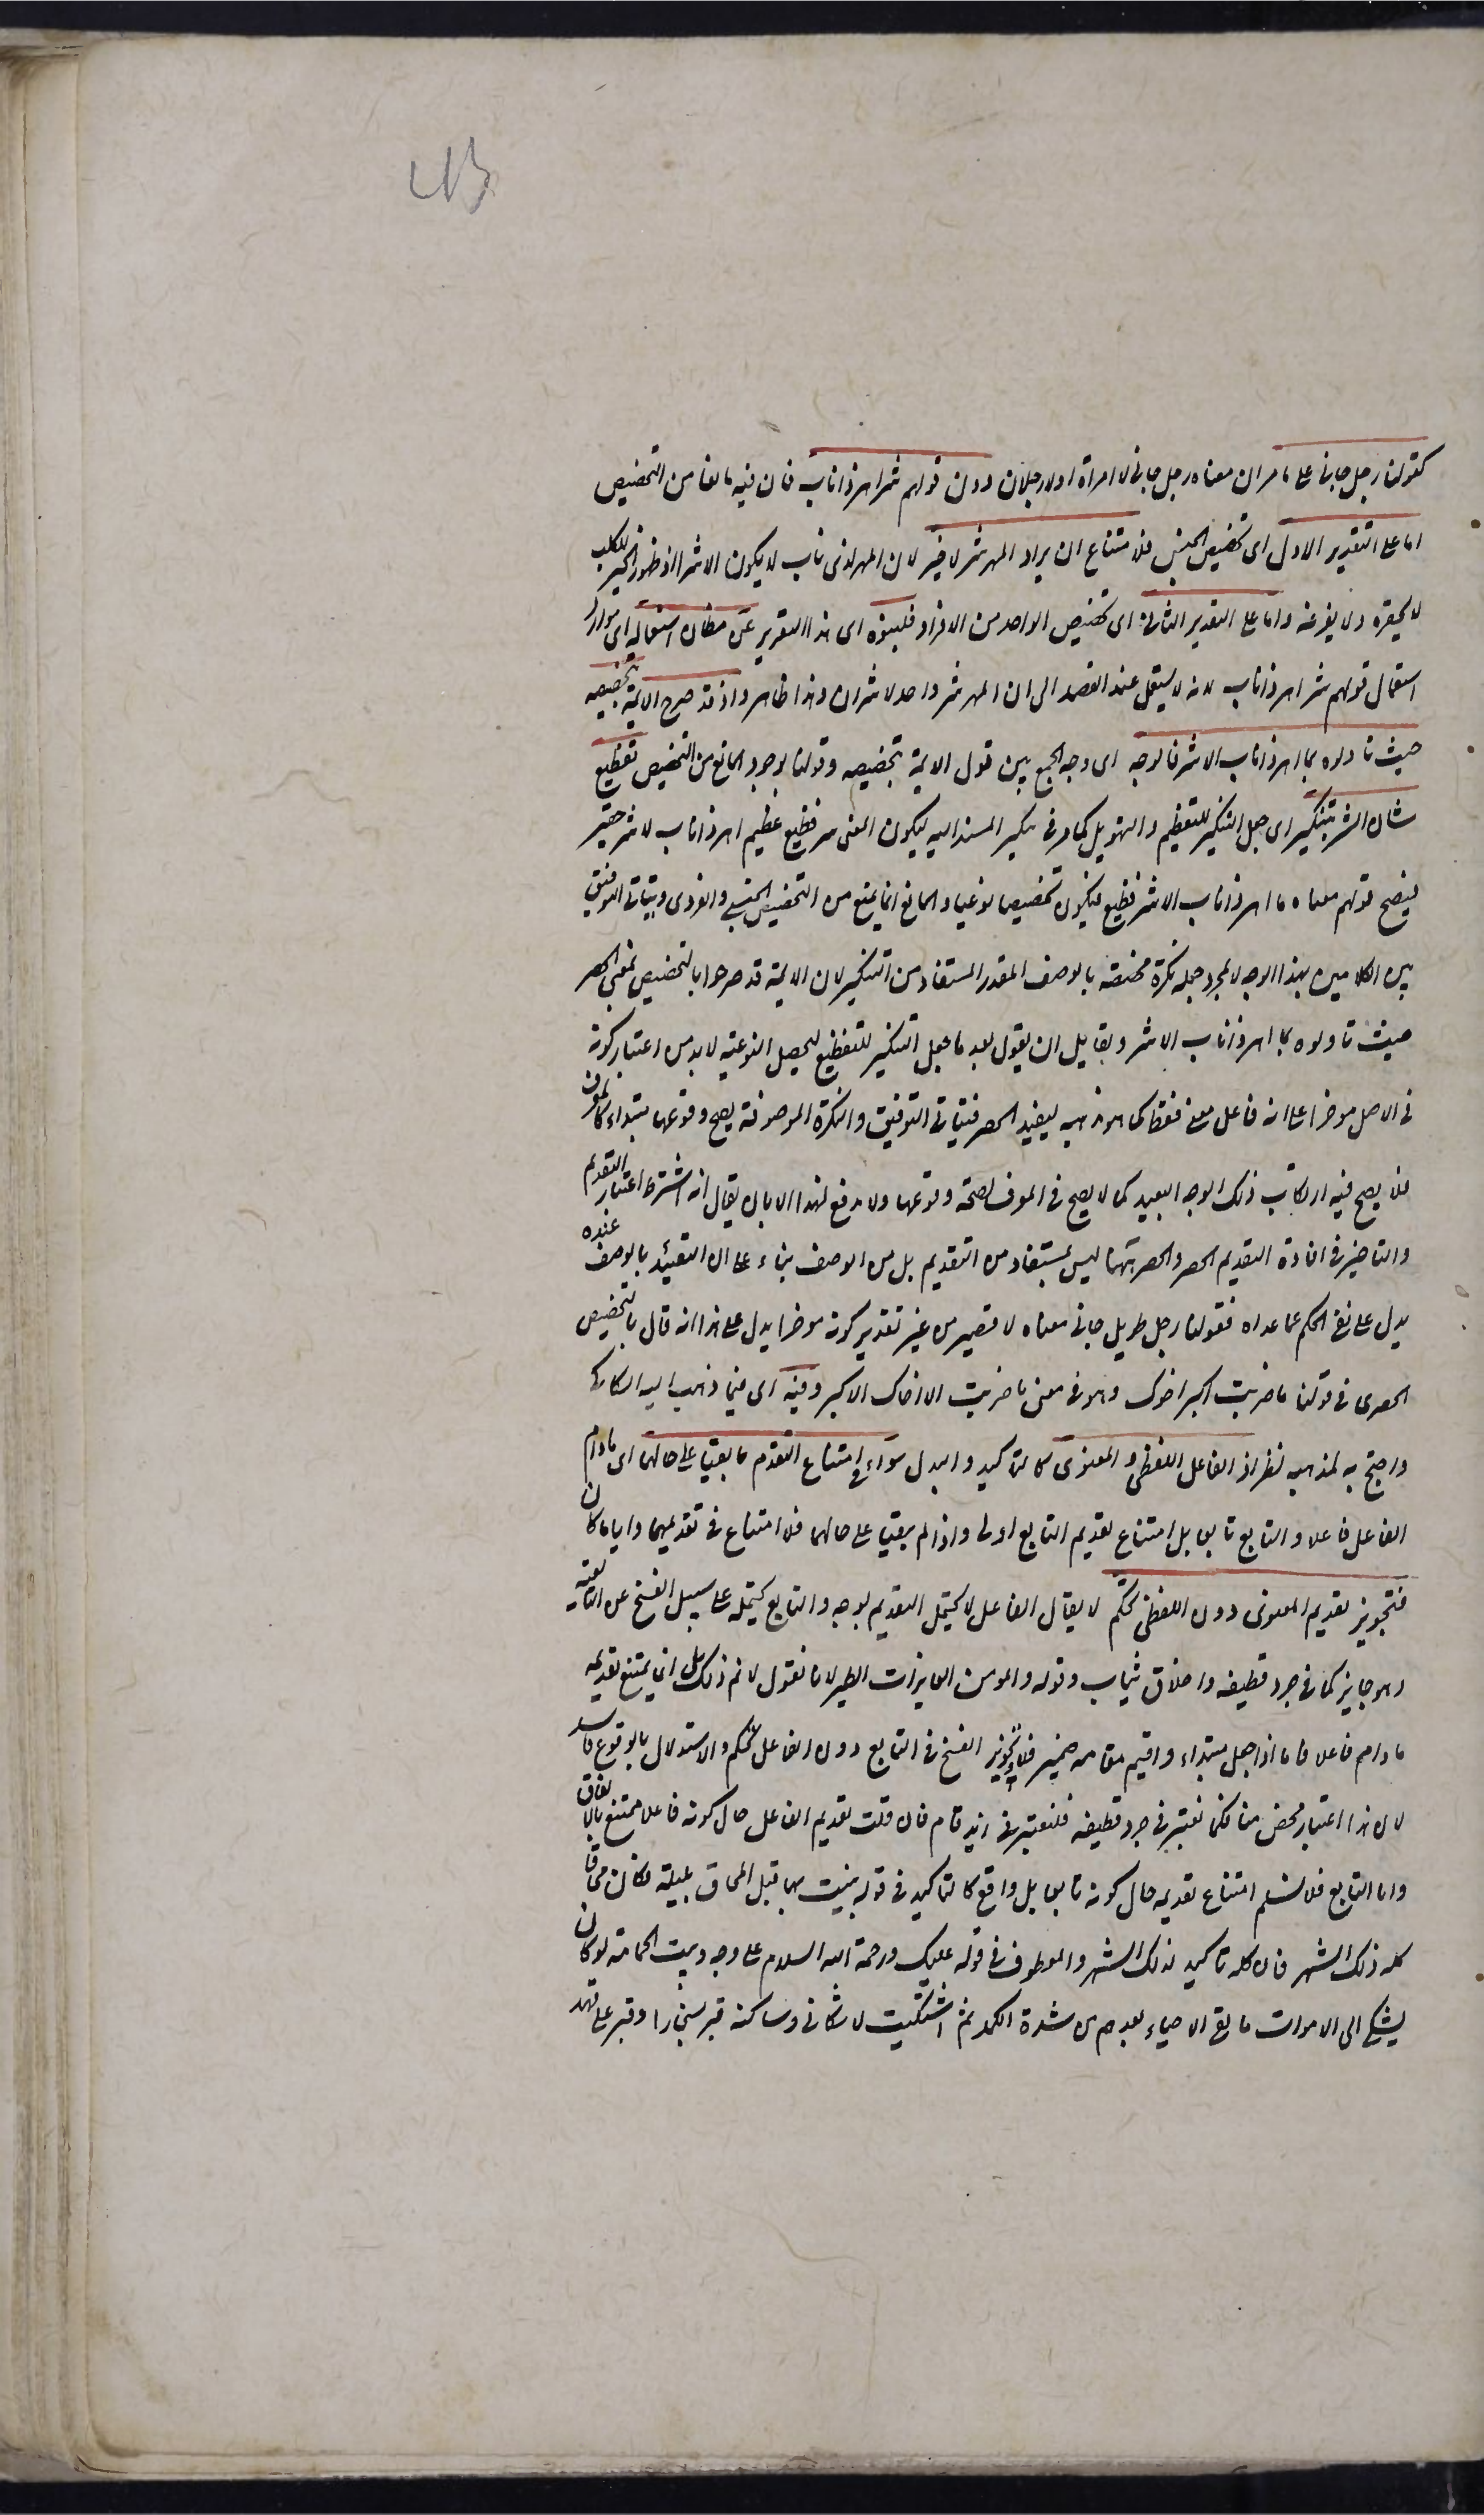 كقولنا رجل جاءنى على ما مر ان معناه رجل جاءنى لا امراة او لا رجلان دون قولهم شر اهر ذا ناب فان فيه مانعا من التخصيص
اما على التقدير الاول اى تخصيص الجنس فلامتناع ان يراد المهر شر لا خير لان المهر لذى ناب لا يكون الا شرا اذ ظهور الخير للكلب
لا يهره ولا يفزعه واما على التقدير الثانى اى تخصيص الواحد من الافراد فلنبوه اى هذا التقرير عن مظان استعماله اى موارد
استعمال قولهم شر اهر ذا ناب لانه لا يستعمل عند القصد الى ان المهر شر واحد لا شران وهذا ظاهر واذ قد صرح الايمة بتخصيصه
حيث تاولوه بما اهر ذا ناب الا شر فالوجه اى وجه الجمع بين قول الايمة بتخصيصه وقولنا بوجود المانع من التخصيص تفظيع
شان الشر بتنكيره اى جعل التنكير للتعظيم والتهويل كما مر فى تنكير المسند اليه ليكون المعنى شر فظيع عظيم اهر ذا ناب لا شر حقير
فيصح قولهم معناه ما اهر ذا ناب الا شر فظيع فيكون تخصيصا نوعيا والمانع انما يمنع من التخصيص الجنسى والفردى ويتاتى التوفيق
بين الكلامين بهذا الوجه لا بمجرد جعله نكرة مخصصة بالوصف المقدر المستفاد من التنكير لان الايمة قد صرحوا بالتخصيص بمعنى الحصر
حيث تاولوه بما اهر ذا ناب الا شر ولقايل ان يقول بعد ما جعل التنكير للتفظيع ليحصل النوعية لا بد من اعتبار كونه
فى الاصل موخرا على انه فاعل معنى فقط كما هو مذهبه ليفيد الحصر فيتاتى التوفيق والنكرة الموصوفة يصح وقوعها مبتداء كالمعرف
فلا يصح فيه ارتكاب ذلك الوجه البعيد كما لا يصح فى المعرف لصحة وقوعها ولا مدفع لهذا الا بان يقال انه اشترط اعتبار التقديم
والتاخير فى افادة التقديم الحصر والحصر ههنا ليس بمستفاد من التقديم بل من الوصف بناء على ان التقييد بالوصف عنده
يدل على نفى الحكم عما عداه فقولنا رجل طويل جاءنى معناه لا قصير من غير تقدير كونه موخرا يدل على هذا انه قال بالتخصيص
الحصرى فى قولنا ما ضربت اكبر اخوك وهو فى معنى ما ضربت الا اخاك الاكبر وفيه اى فيما ذهب اليه السكاكى
واحتج به لمذهبه نظر اذ الفاعل اللفظى والمعنوى كالتاكيد والبدل سواء فى امتناع التقدم ما بقيا على حالهما اى ما دام
الفاعل فاعلا والتابع تابعا بل امتناع تقديم التابع اولى واذا لم يبقيا على حالهما فلا امتناع فى تقديمهما وايا ما كان
فتجويز تقديم المعنوى دون اللفظى تحكم لا يقال الفاعل لا يحتمل التقديم بوجه والتابع يحتمله على سبيل الفسخ عن التابعية
وهو جايز كما فى جرد قطيفة واخلاق ثياب وقوله والمومن العايذات الطير لانا نقول لا نم ذلك بل انما يمتنع تقديمه
ما دام فاعلا فاما اذا جعل مبتداء واقيم مقامه ضمير فلا وتجويز الفسخ فى التابع دون الفاعل تحكم والاستدلال بالوقوع فاسد
لان هذا اعتبار محض منا فكما نعتبر فى جرد قطيفة فلنعتبر فى زيد قام فان قلت تقديم الفاعل حال كونه فاعلا ممتنع بالاتفاق
واما التابع فلا نسلم امتناع تقديمه حال كونه تابعا بل واقع كالتاكيد فى قوله بنيت بها قبل المحاق بليلة فكان محاقا
كله ذلك الشهر فان كله تاكيد لذلك الشهر والمعطوف فى قوله عليك ورحمة الله السلام على وجه وبيت الحماسة لو كان
يشكى الى الاموات ما لقى الاحياء بعدهم من شدة الكمد ثم اشتكيت لاشكانى وساكنه قبر بسنجار او قبر على قهد